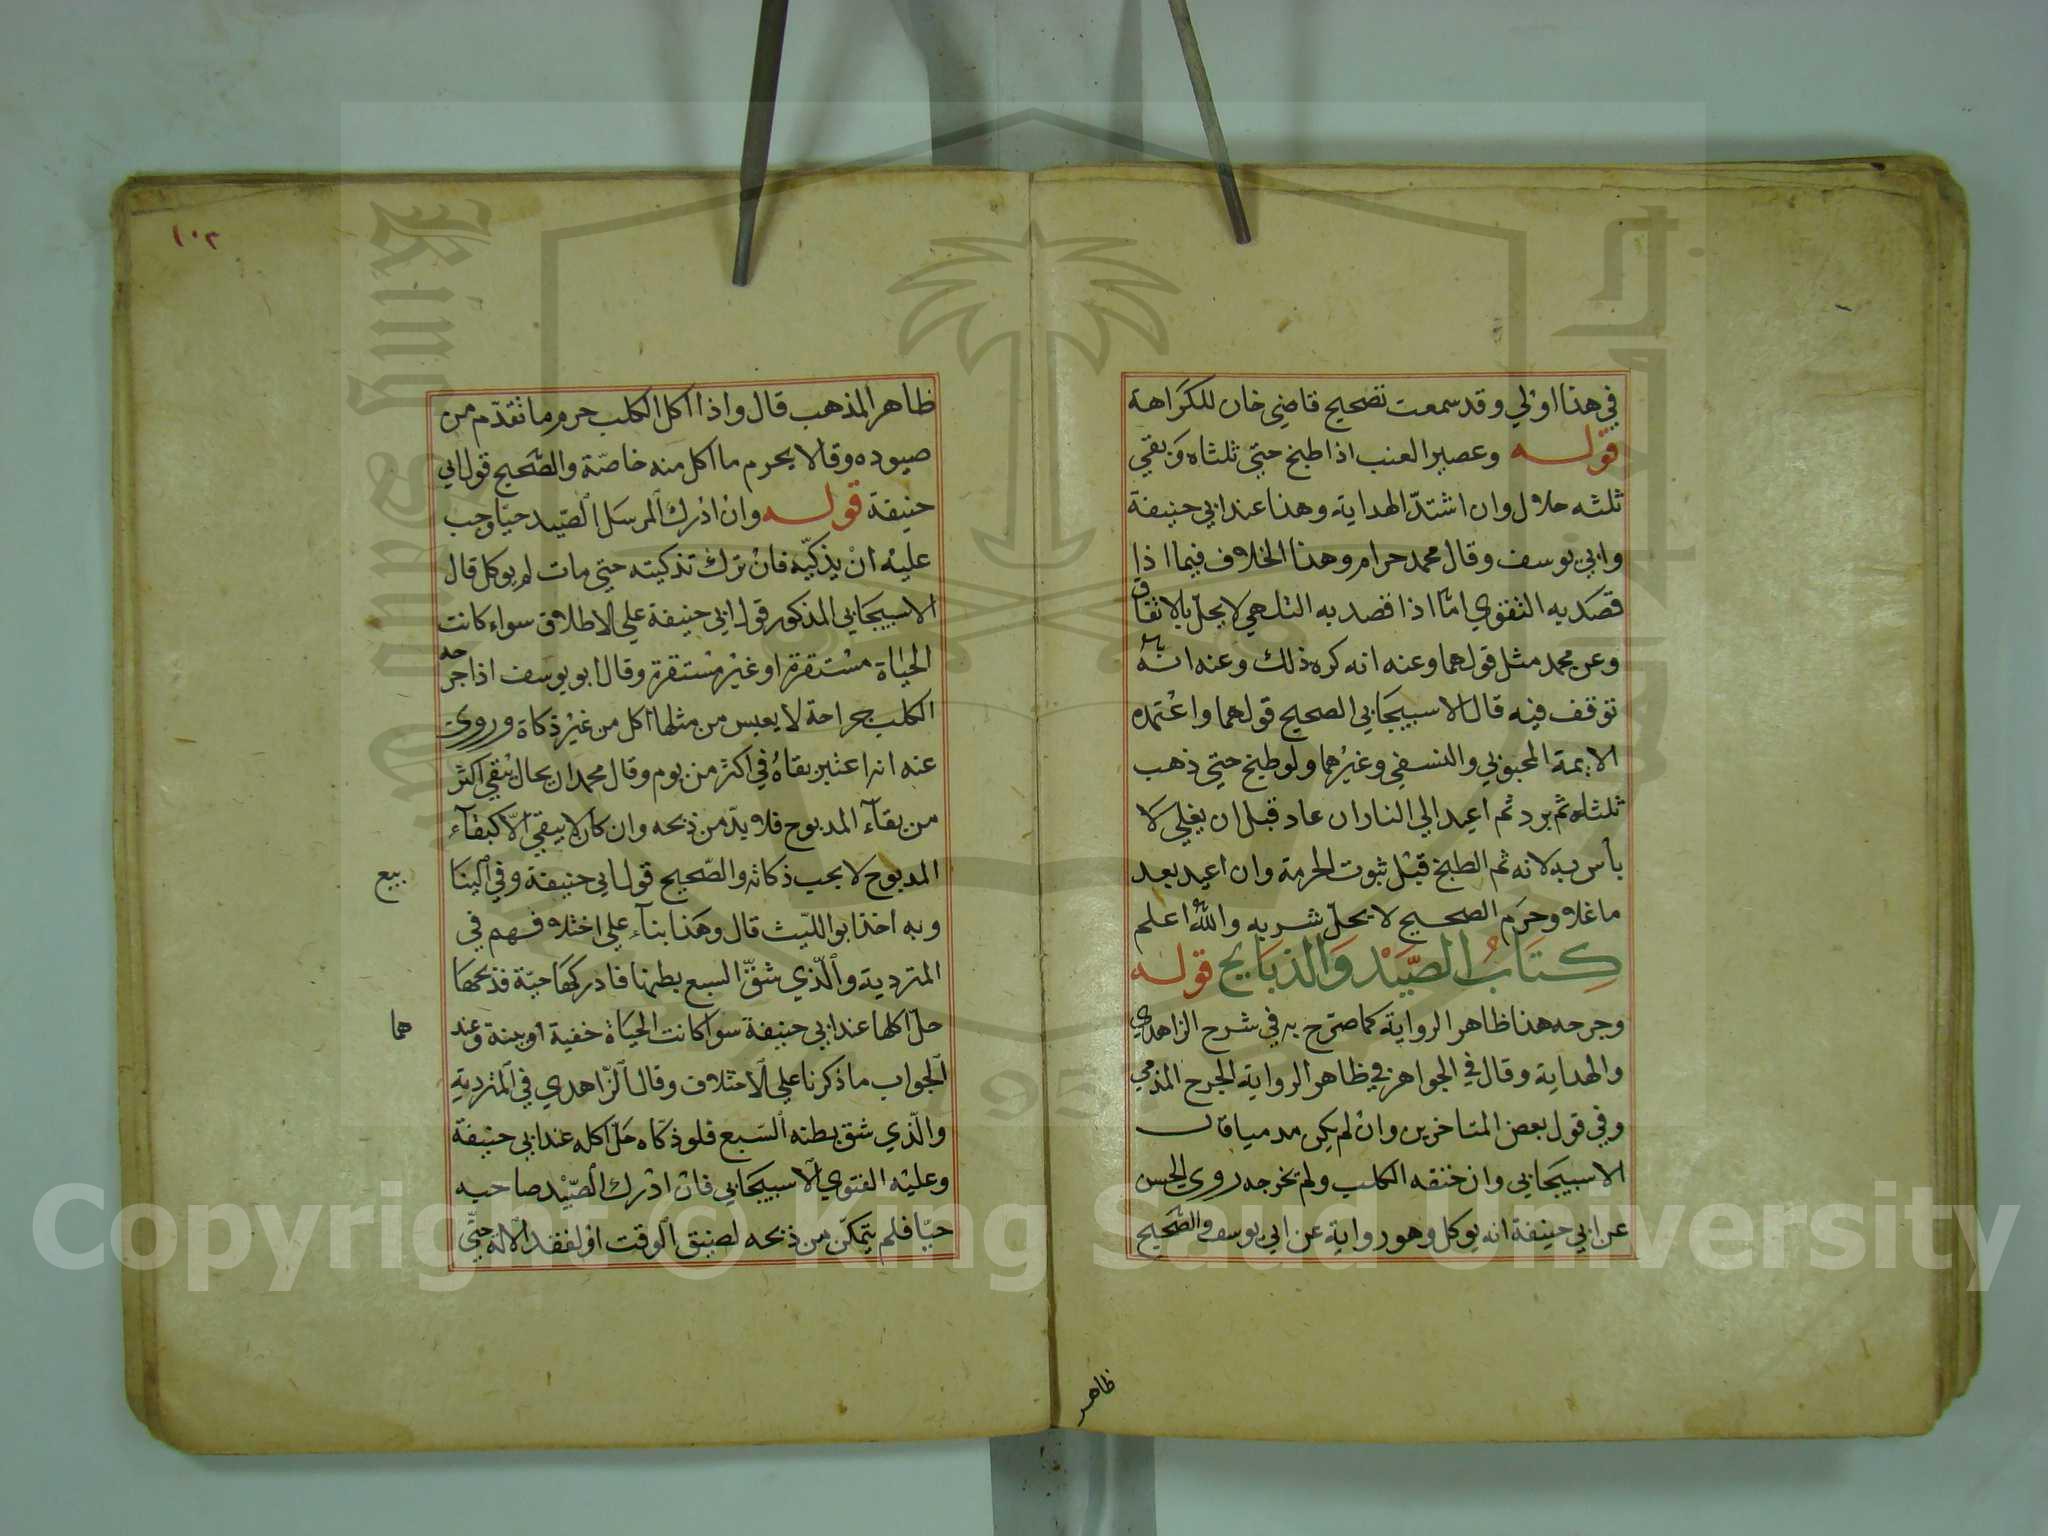 في هذا اولي وقد سمعت تصحيح قاضي خان للكراهة
قوله وعصير العنب اذا طبخ حتي ثلثاه وبقي
ثلثه حلال وان اشتد الهداية وهذا عند ابي حنيفة
وابي يوسف وقال محمد حرام وهذا الخلاف فيما اذا
قصد به التقوي امّا اذا قصد به التلهي لا يحلّ بالاتفاق
وعن محمد مثل قولهما وعنه انه كره ذلك وعنه انّهُ
توقف فيه قال الاسبيجابي الصحيح قولهما واعتمده
الايمة المحبوبي والنسفي وغيرهما ولو طبخ حتي ذهب
ثلثاه ثم برد ثم اعيد الي النار ان عاد قبل ان يغلي لا
بأس به لانه تم الطبخ قبل ثبوت الحرمة وان اعيد بعد
ما غلا وحرم الصحيح لا يحلّ شربه والله اعلم
كِتَابُ الصَّيْد وَالذبَايح قوله
وجرحه هذا ظاهر الرواية كما صرّح به في شرح الزاهدي
والهداية وقال في الجواهر في ظاهر الرواية الجرح المدمي
وفي قول بعض المتاخرين وان لم يكن مدميا قال
الاسبيجابي وان خنقه الكلب ولم يخرجه روي الحسن
عن ابي حنيفة انه يوكل وهو رواية عن ابي يوسف والصّحيح
ظاهر
١٠٢
ظاهر المذهب قال واذا اكل الكلب حرم ما تقدّم من
صيوده وقالا يحرم ما اكل منه خاصّة والصّحيح قول ابي
حنيفة قوله وان ادرك المرسَل الصّيد حيّا وجب
عليه ان يذكيّه فان ترك تذكيته حتي مات لم يوكل قال
الاسبيجابي المذكور قول ابي حنيفة علي الاطلاق سواء كانت
الحياة مستقرة او غير مستقرة وقال ابو يوسف اذا جرحه
الكلب جراحة لا يعيس من مثلها اكل من غير ذكاة وروي
عنه انه اعتبر بقاهُ في اكثر من يوم وقال محمد ان بحال يبقي اكثر
من بقآء المذبوح فلا بدّ من ذبحه وان كان لا يبقي الّا كبقآء
المذبوح لا يجب ذكاته والصّحيح قول ابي حنيفة وفي الينا
بيع
وبه اخذ ابو الليث قال وهذا بنآء علي اختلافهم في
المتردية والّذي شقّ السبع بطنها فادركها حيّة فذبحها
حلّ اكلها عند ابي حنيفة سوا كانت الحياة خفية او بينة وعند
هما
الجواب ما ذكرنا علي الاختلاف وقال الزّاهدي في المتردية
والّذي شق بطنه السّبع فلو ذكّاه حَلّ اكله عند ابي حنيفة
وعليه الفتوي الاسبيجابي فان ادرك الصّيد صاحبه
حيّا فلم يتمكّن من ذبحه لضيق الوقت او لفقد الآلة حتّي
Copyright © King Saud University